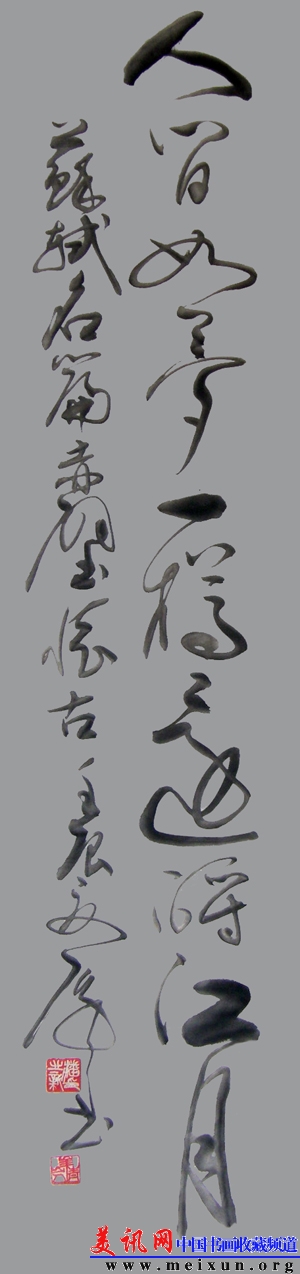 人间如夢一樽還酹江月
蘇軾名篇赤壁懷古壬辰书
美讯网中国书画收藏频道
www.meixun.org